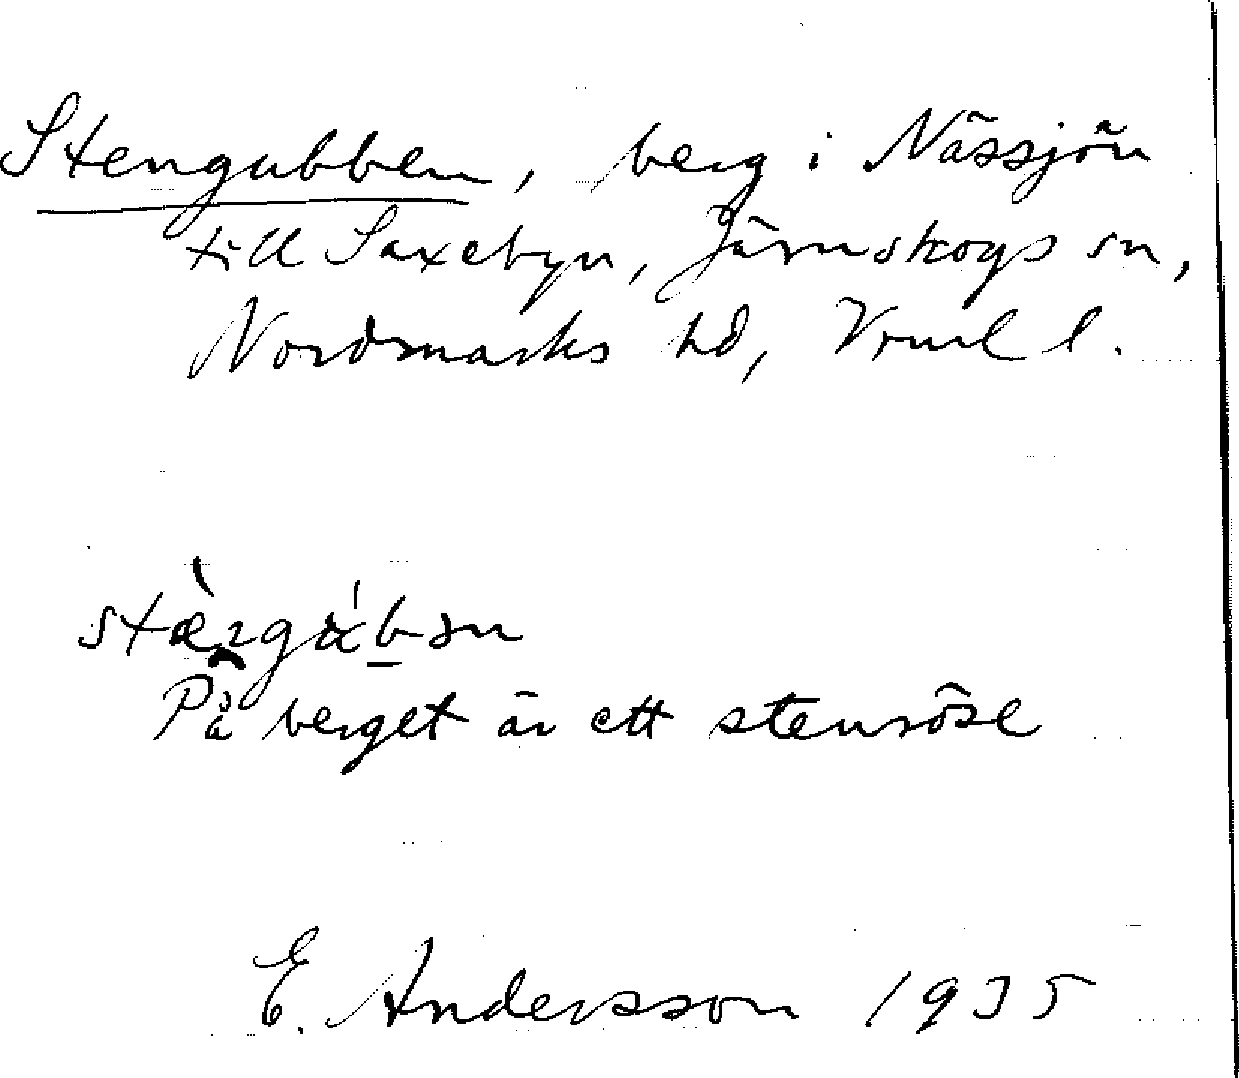 Stengubben, berg i Nässjön
till Saxebyn, Järnskogs sn,
Nordmarks hd, Vrml l.
På berget är ett stenröse
E. Andersson 1935